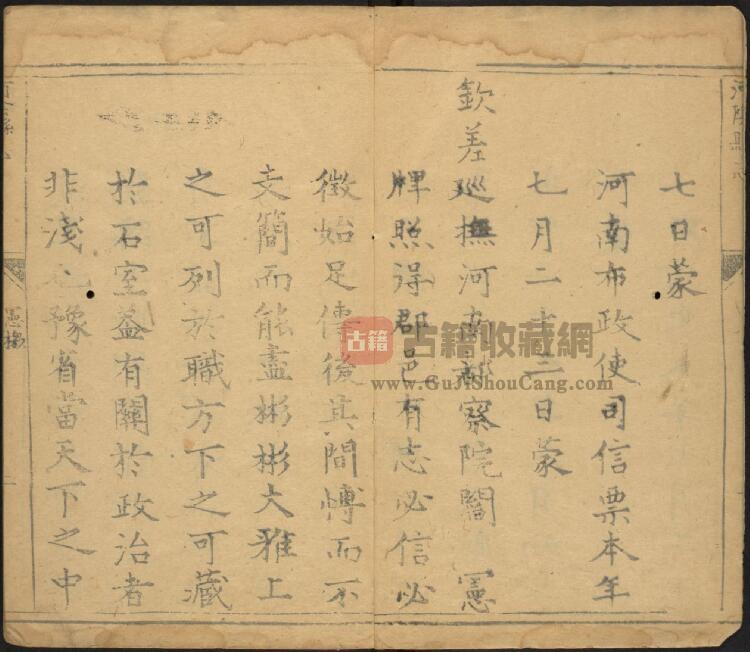 七日蒙
河南布政使司信票本年
七月二十三日蒙
欽差巡撫河南都察院閻 憲
牌照得郡邑有志必信必
徵始足傳後其間博而不
支簡而能盡彬彬大雅上
之可列於職方下之可藏
於石室葢有關於政治者
非淺也豫省當天下之中
憲檄
古籍
古籍收藏網
www.GuJiShouCang.com